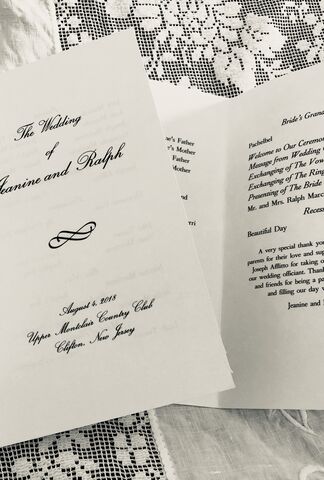 The Wedding
of
Jeanine and Ralph
August 4, 2018
Upper Montclair Country Club
Clifton, New Jersey
Father
Mother
Father
Mother
Bride's
Pachelbel
Welcome to Our
Message from Wedding
Exchanging of The
Exchanging of The
Presenting of The Bride
Mr. and Mrs. Ralph
Beautiful Day
A very special thank
parents for their love and
Joseph Afflitto for taking
our wedding officiant.
and friends for being a
and filling our day
Jeanine and